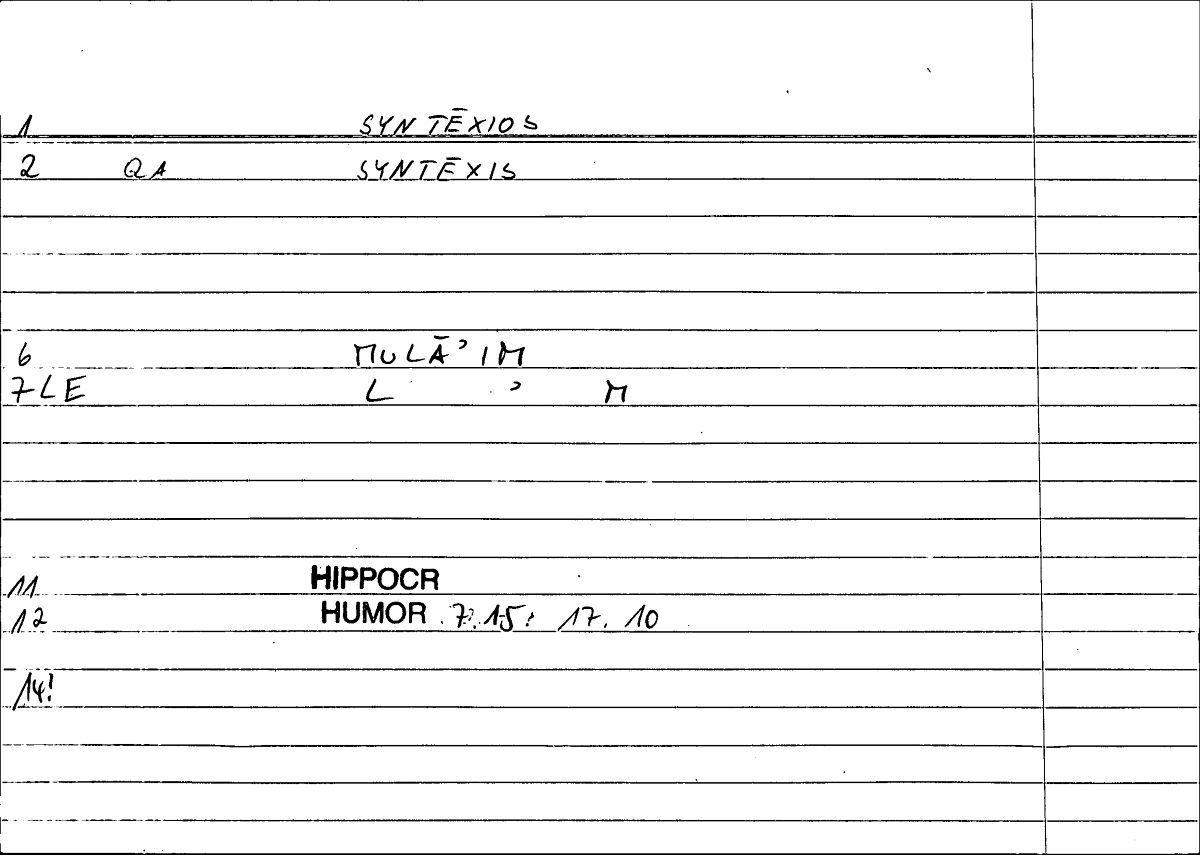 1 SYNTĒXIOS
2 QA SYNTĒXIS
6 MULĀʾIM
7 LE L ʾ M
11 HIPPOCR
12 HUMOR 7.15; 17.10
14!